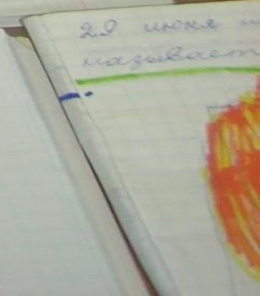 29 июня
называет